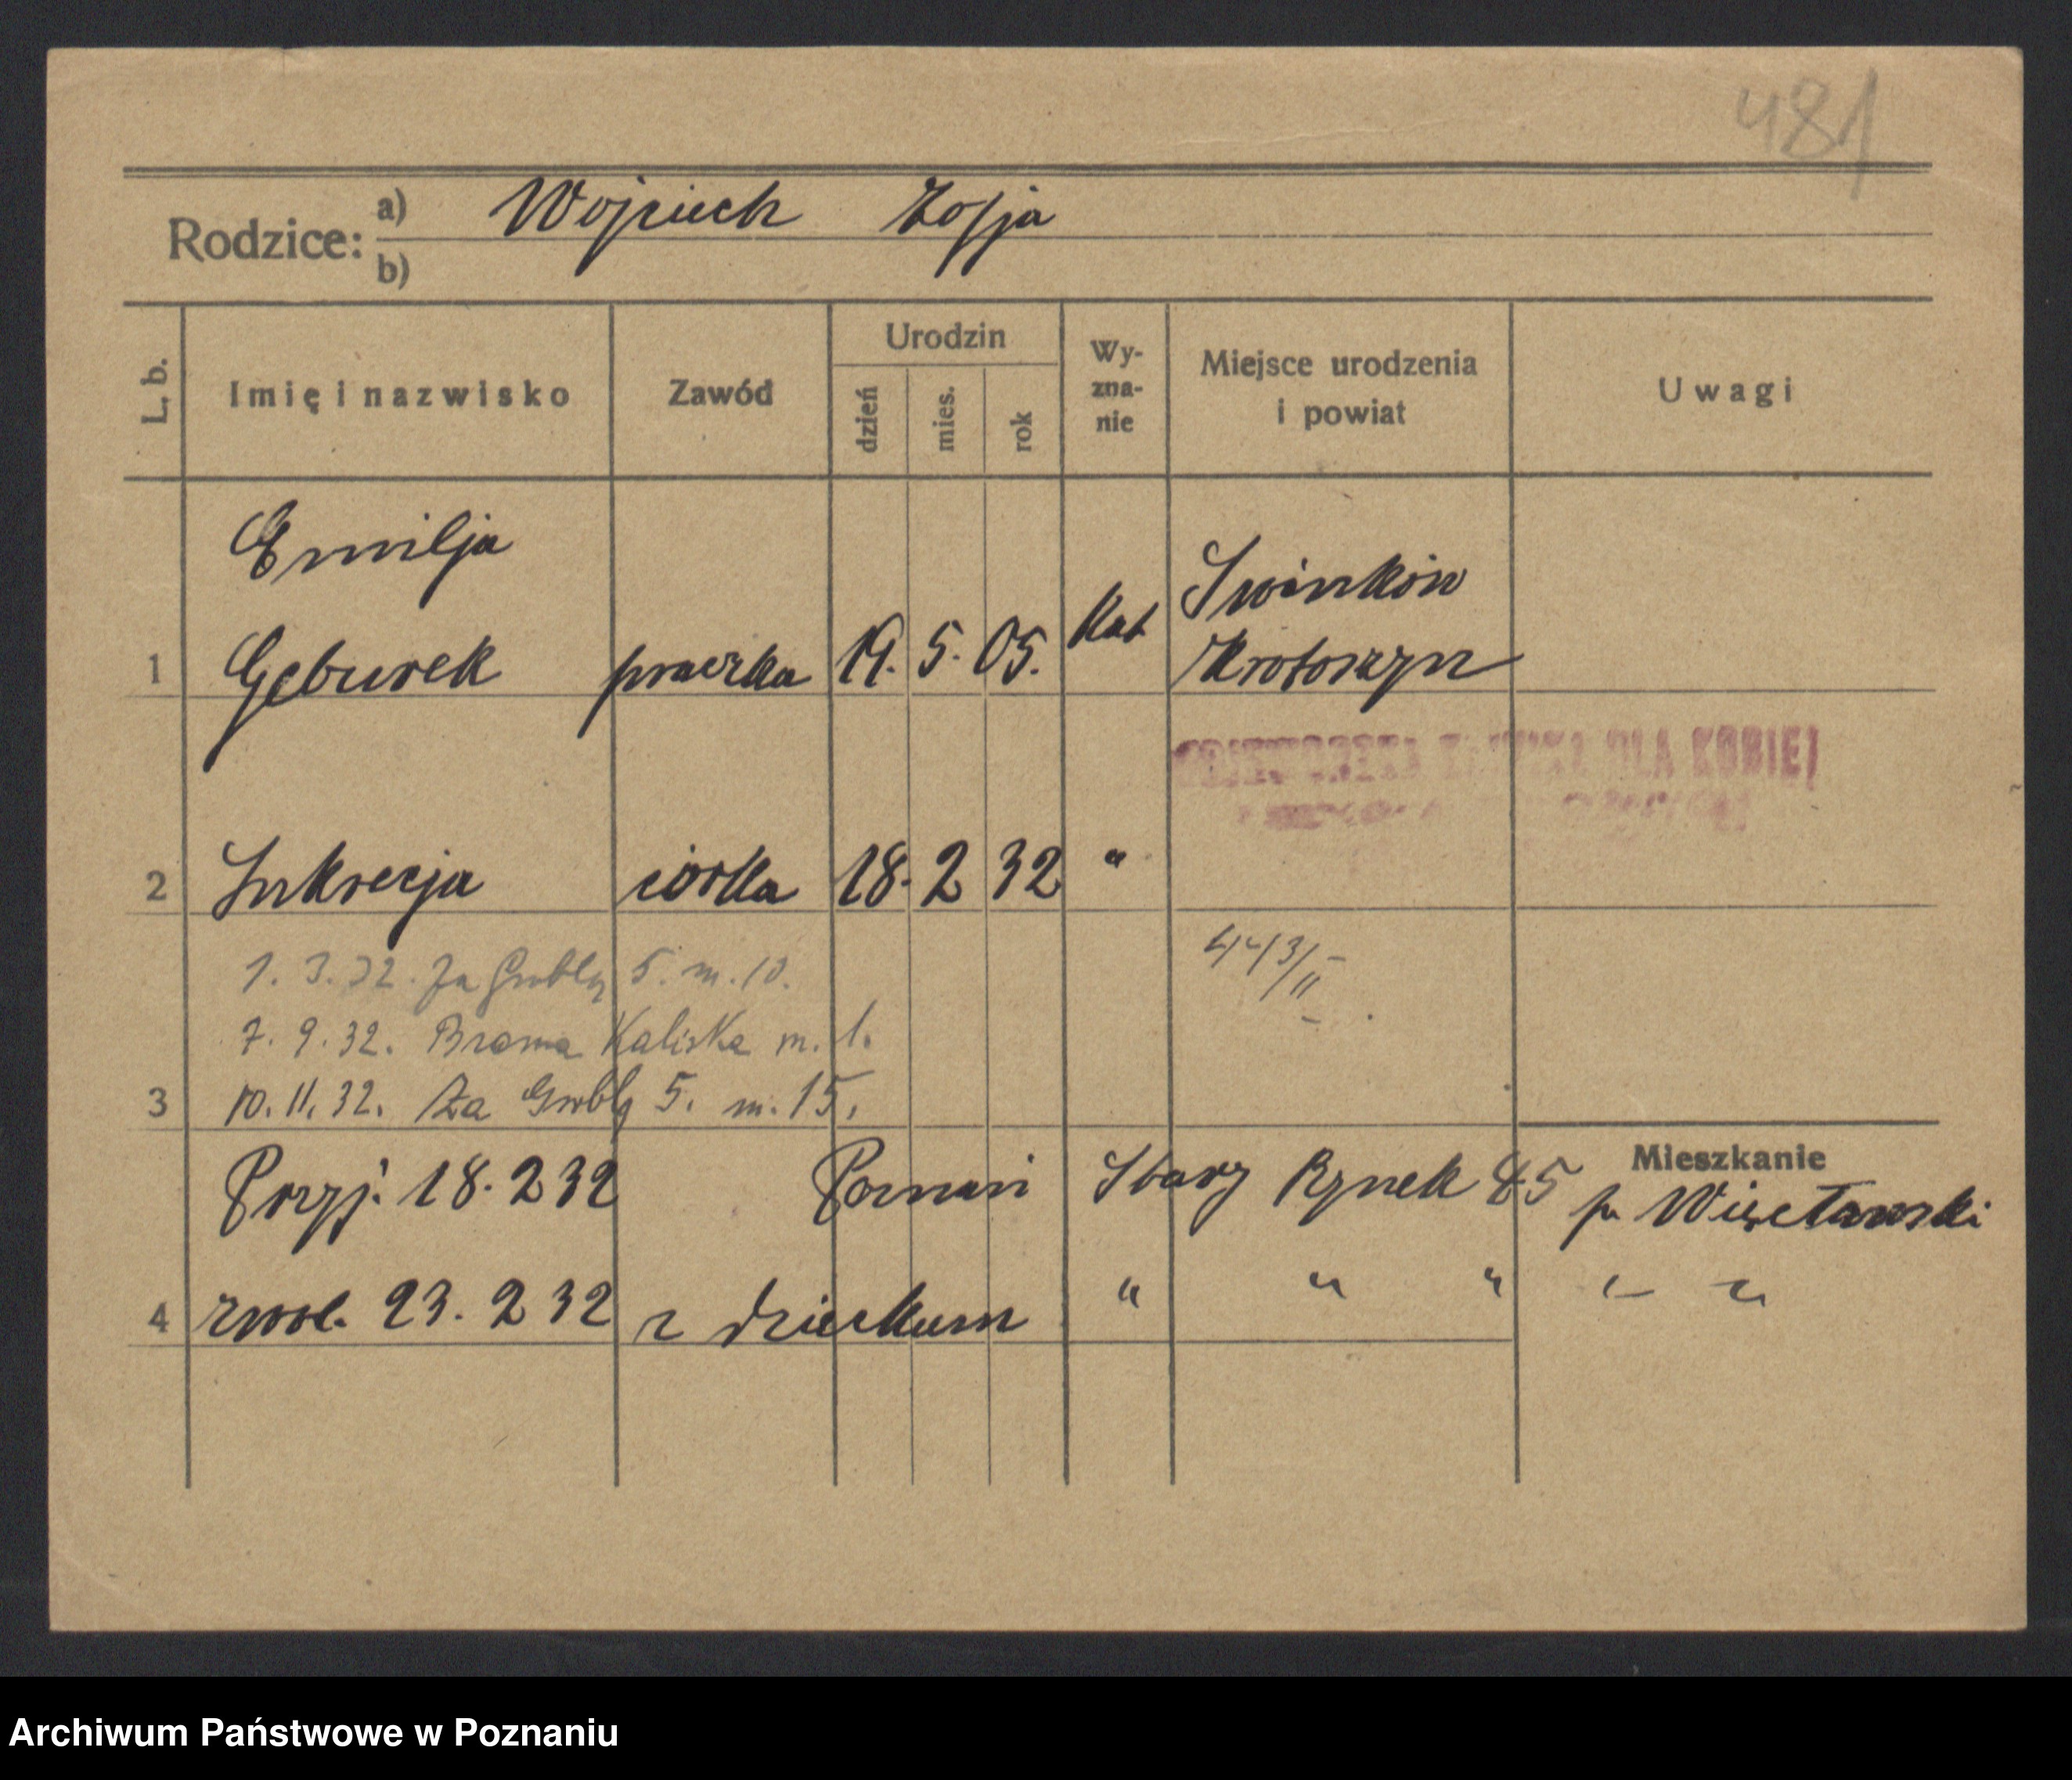 481
Rodzice: a) Wojciech Zofja
b)
L. b. Imię i nazwisko Zawód Urodzin dzień mies. rok Wy-zna-nie Miejsce urodzenia i powiat Uwagi
Emilja
Swinków
1 Gęburek praczka 19. 5. 05. Kat Krotoszyn
DLA KOBIET
2 Lukrecja córka 18. 2 32 "
1. 3. 32. Za Groblą 5. m. 10.
7. 9. 32. Brama Kaliska m. 1.
3 10. 11. 32. Za Groblą 5. m. 15.
Mieszkanie
Przyj. 18. 2 32 Poznań Stary Rynek 45 p.
4 zwol. 23. 2 32 z dzieckiem " " " " "
Archiwum Państwowe w Poznaniu